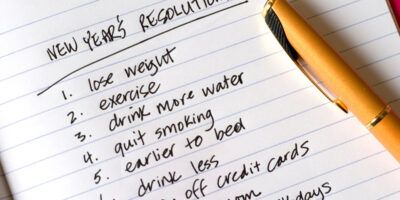 NEW YEAR'S
1. lose weight
2. exercise
3. drink more water
4. quit smoking
5. earlier to bed
drink less
off credit cards
days